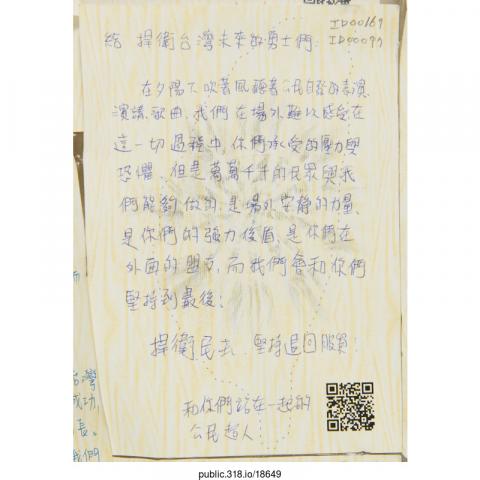 ID00169
ID00099
給 捍衛台灣未來的勇士們:
在夕陽下吹著風聽著公民自發的表演、
演講、歌曲,我們在場外難以感受在
這一切過程中,你們承受的壓力與
恐懼。但是萬萬千千的民眾與我
們能夠做的,是場外安靜的力量,
是你們的強力後盾,是你們在
外面的盟友,而我們會和你們
堅持到最後。
捍衛民主 堅持退回服貿!
和你們站在一起的
公民超人
台灣
成功,
長、
我們
public.318.io/18649